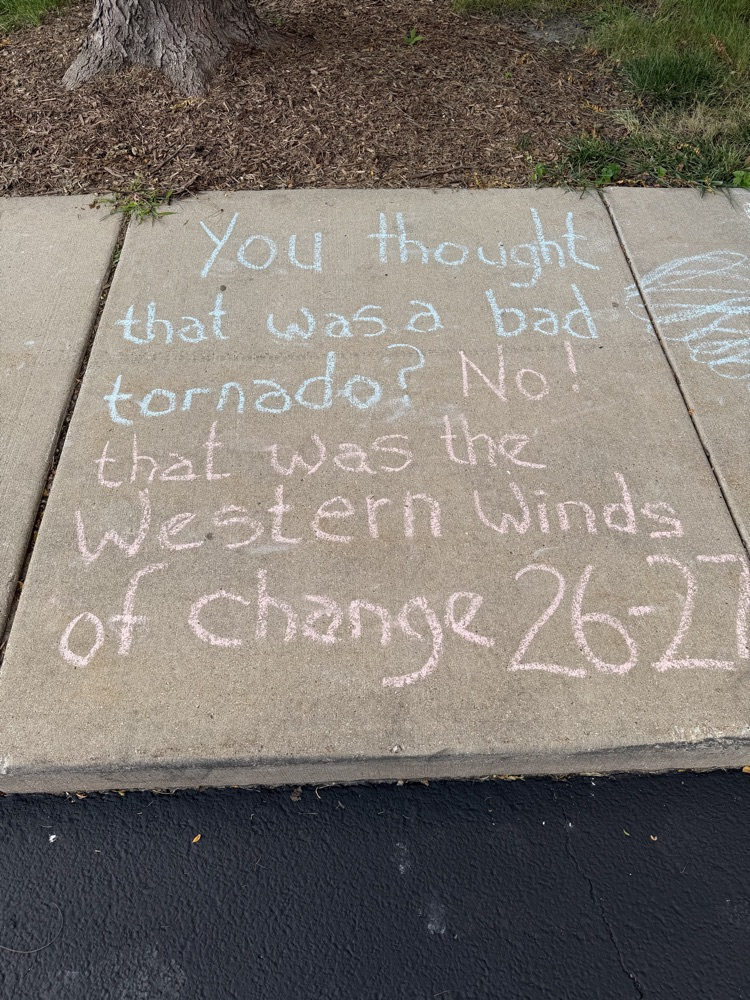 You thought
that was a bad
tornado? No!
that was the
Western Winds
of change 26-27